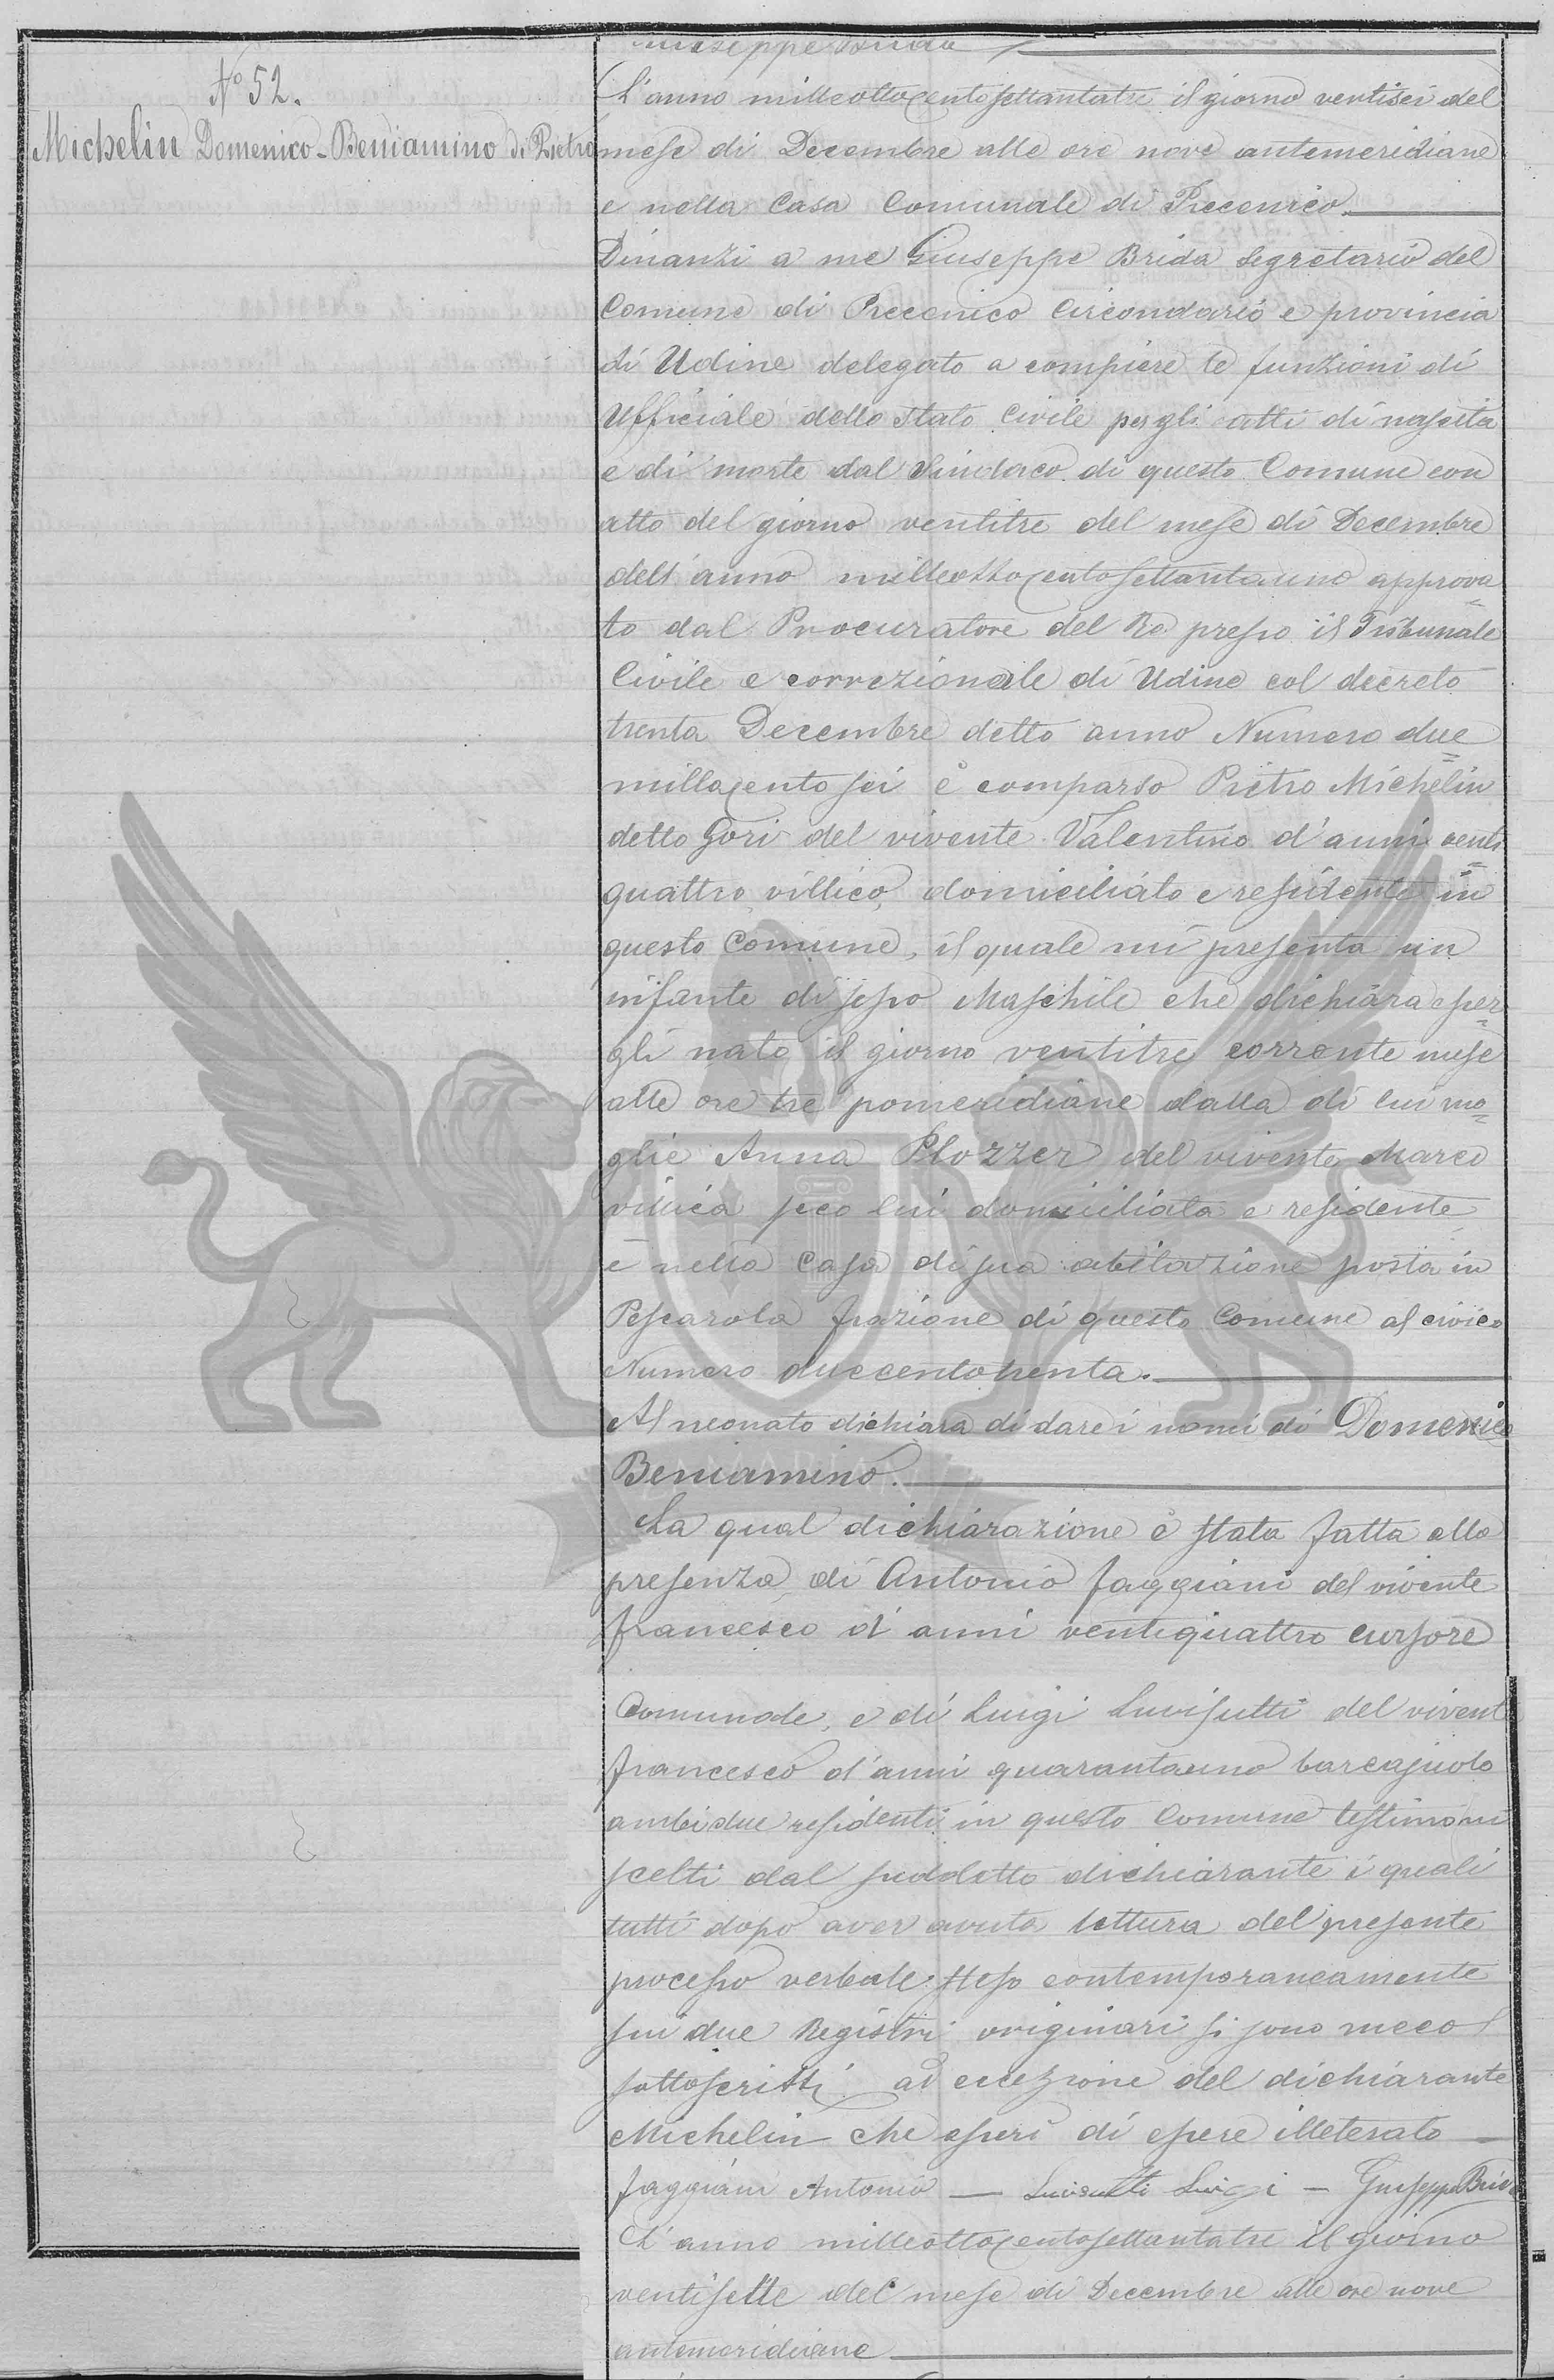 Giuseppe Brida
N° 52.
Michelin Domenico-Beniamino di Pietro
L'anno milleottocentosettantatre il giorno ventisei del
mese di Decembre alle ore nove antemeridiane
e nella Casa Comunale di Precenico.
Dinanzi a me Giuseppe Brida Segretario del
Comune di Precenico Circondario e provincia
di Udine delegato a compiere le funzioni di
Ufficiale dello Stato Civile per gli atti di nascita
e di morte dal Sindaco di questo Comune con
atto del giorno ventitre del mese di Decembre
dell'anno milleottocentosettantauno approva
to dal Procuratore del Re presso il Tribunale
Civile e correzionale di Udine col decreto
trenta Decembre detto anno Numero due
millacentosei è comparso Pietro Michelin
detto Gori del vivente Valentino d'anni venti
quattro, villico, domiciliato e residente in
questo Comune, il quale mi presenta un
infante di sesso Maschile che dichiara esser
gli nato il giorno ventitre corrente mese
alle ore tre pomeridiane dalla di lui mo
glie Anna Plozzer del vivente Marco
villica seco lui domiciliata e residente
e nella casa di sua abitazione posta in
Pescarola frazione di questo Comune al civico
Numero duecentotrenta.
Al neonato dichiara di dare i nomi di Domenico
Beniamino.
La qual dichiarazione è stata fatta alla
presenza di Antonio Faggiani del vivente
Francesco d'anni ventiquattro cursore
Comunale, e di Luigi Luvisutti del vivent
Francesco d'anni quarantauno barcajuolo
ambidue residenti in questo Comune testimoni
scelti dal suddetto dichiarante i quali
tutti dopo aver avuta lettura del presente
processo verbale steso contemporaneamente
sui due Registri originari si sono meco
sottoscritti ad eccezione del dichiarante
Michelin che asserì di essere illeterato
Faggiani Antonio — Luvisutti Luigi — Giuseppe Brida
L'anno milleottocentosettantatre il giorno
ventisette del mese di Decembre alle ore nove
antemeridiane